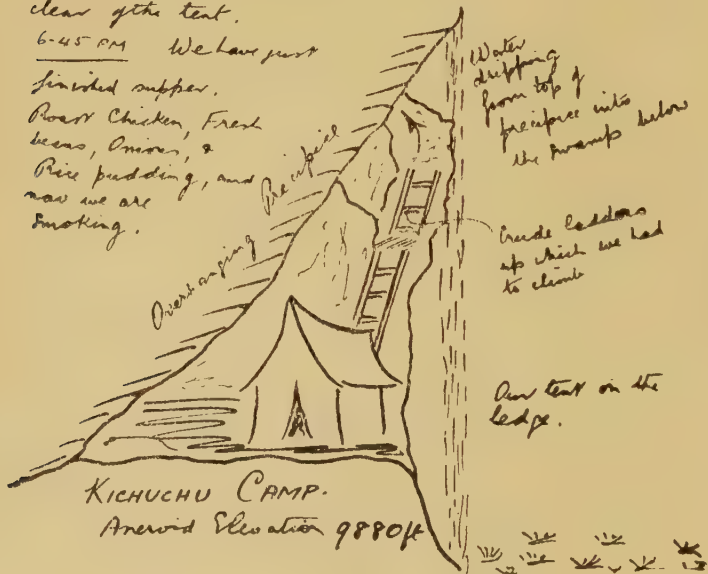 clear of the tent.
6-45 PM We have just
finished supper.
Roast Chicken, Fresh
beans, Onions, &
Rice pudding, and
now we are
Smoking.
Overhanging Precipice
Water
dripping
from top of
precipice into
the swamp below
Crude ladders
up which we had
to climb
Our tent on the
ledge.
KICHUCHU CAMP.
Aneroid Elevation 9880ft